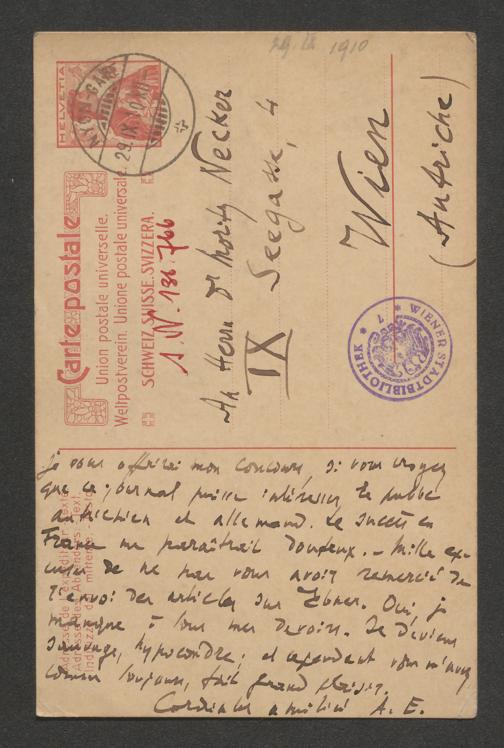 29. IX. 1910
HELVETIA
NYON-GARE
29.IX.10.XII-
Carte postale
Union postale universelle.
Weltpostverein. Unione postale universale.
SCHWEIZ. SUISSE. SVIZZERA.
I. N. 136.766
An Herrn Dr Moritz Necker
IX Seegasse, 4
Wien
(Autriche)
* WIENER STADTBIBLIOTHEK *
Adresse de l'expéditeur. Texte.
Adresse des Absenders. Text.
Indirizzo del mittente. Testo.
Je vous offrirai mon concours, si vous croyez
que ce journal puisse intéresser le public
autrichien et allemand. Le succès en
France me paraîtrait douteux. – Mille ex-
cuses de ne pas vous avoir remercié de
l'envoi des articles sur Ebner. Oui, je
manque à tous mes devoirs. Je deviens
sauvage, hypocondre; et cependant vous m'avez
comme toujours, fait grand plaisir.
Cordiales amitiés A. E.